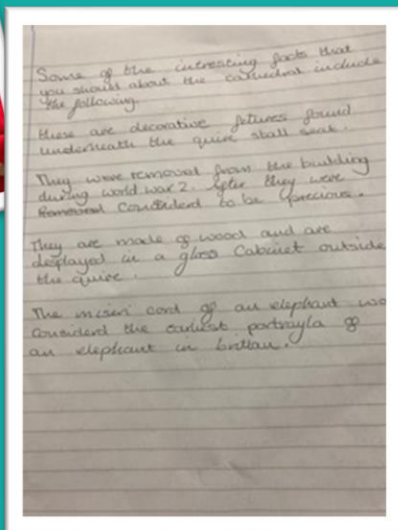 Some of the intresting facts that
you should about the cathedral include
the following.
these are decorative fitures found
underneath the quire stall seat.
They were removed from the building
during world war 2. After they were
Removed Considerd to be precious.
They are made of wood and are
displayed in a glass Cabinet outside
the quire.
The miseri cord of an elephant was
Considerd the earliest portrayla of
an elephant in brittan.